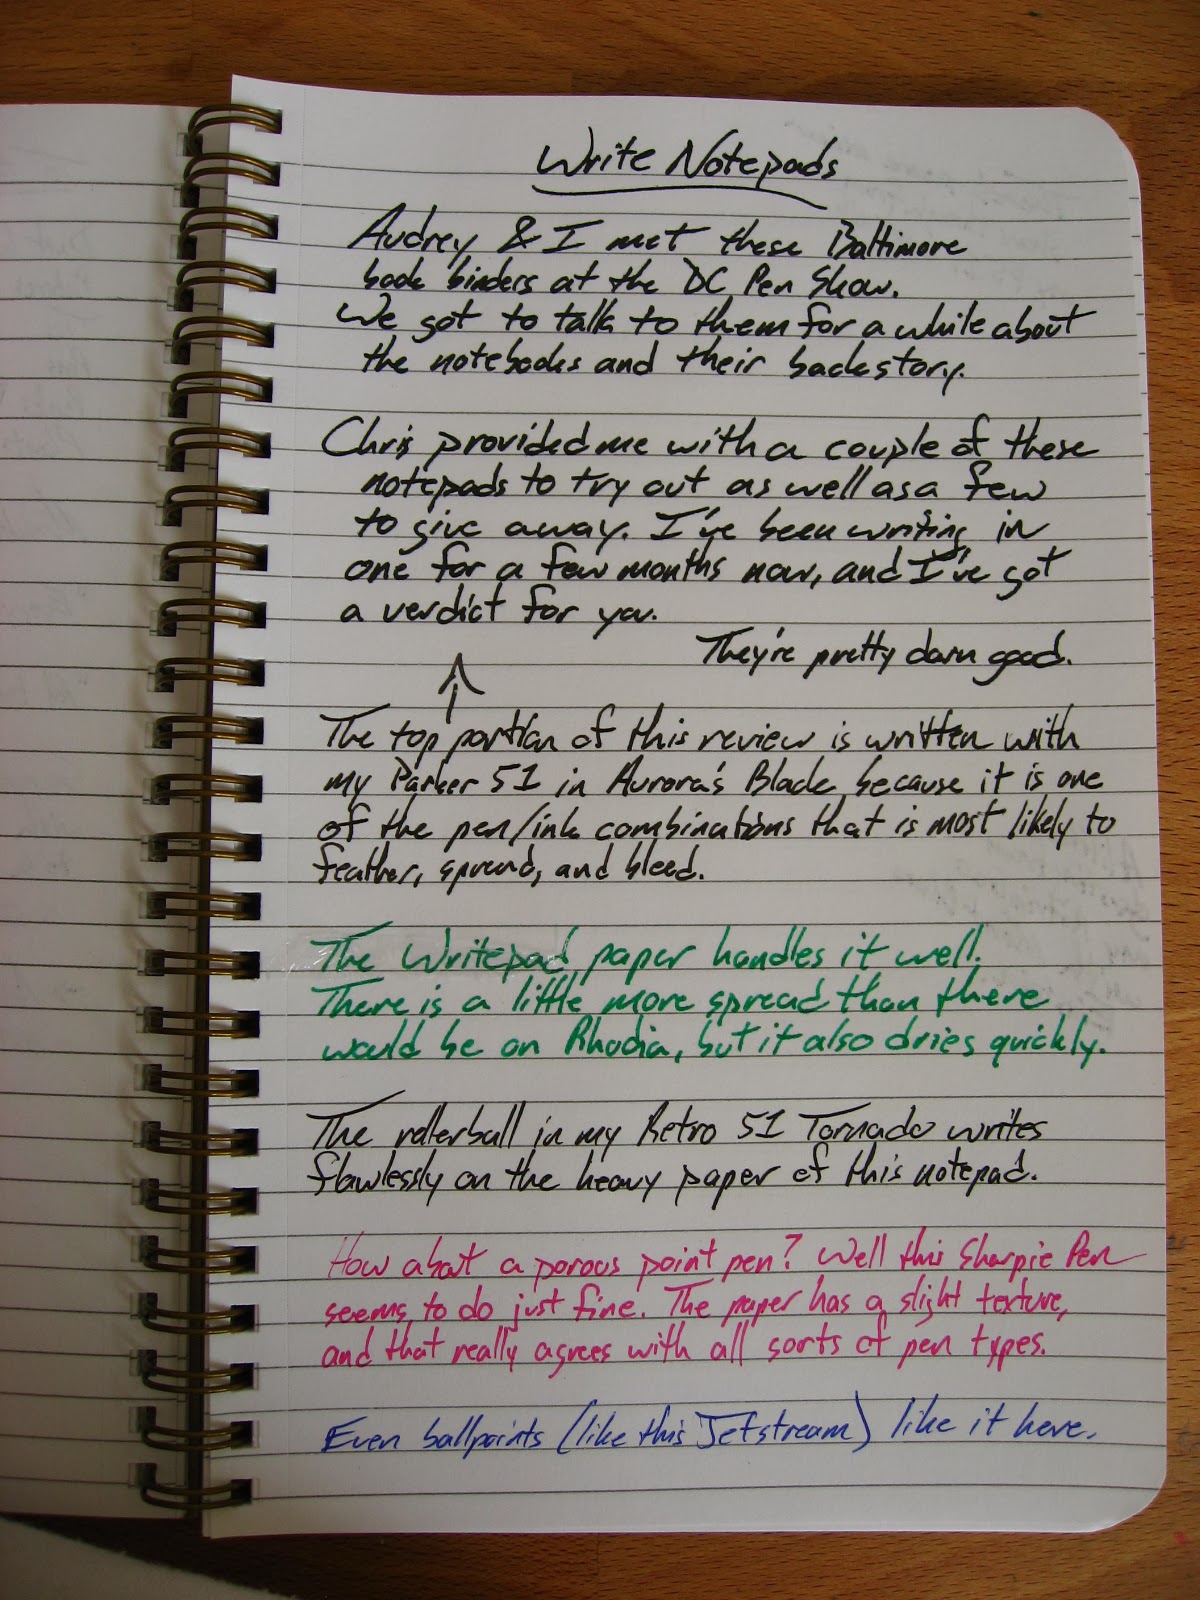 Write Notepads
Audrey & I met these Baltimore
book binders at the DC Pen Show.
We got to talk to them for a while about
the notebooks and their backstory.
Chris provided me with a couple of these
notepads to try out as well as a few
to give away. I've been writing in
one for a few months now, and I've got
a verdict for you.
They're pretty darn good.
The top portion of this review is written with
my Parker 51 in Aurora's Black, because it is one
of the pen/ink combinations that is most likely to
feather, spread, and bleed.
The Writepad paper handles it well.
There is a little more spread than there
would be on Rhodia, but it also dries quickly.
The rollerball in my Retro 51 Tornado writes
flawlessly on the heavy paper of this notepad.
How about a porous point pen? Well this Sharpie Pen
seems to do just fine. The paper has a slight texture,
and that really agrees with all sorts of pen types.
Even ballpoints (like this Jetstream) like it here.